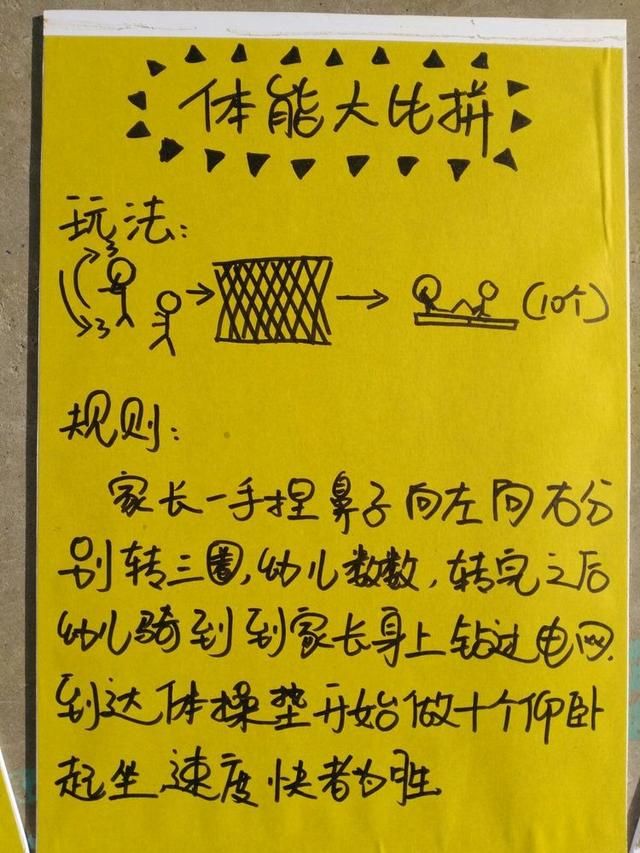 体能大比拼
玩法:
3
3
(10个)
规则:
家长一手捏鼻子向左向右分
别转三圈,幼儿数数,转完之后
幼儿骑到到家长身上钻过电网.
到达体操垫开始做十个仰卧
起坐,速度快者为胜